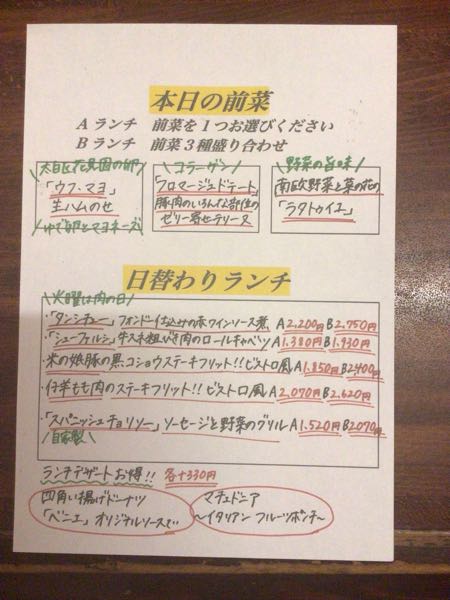 本日の前菜
Aランチ 前菜を1つお選びください
Bランチ 前菜3種盛り合わせ
「ウフ・マヨ」
生ハムのせ
\ゆで卵とマヨネーズ/
\コラーゲン/
「フロマージュドテート」
豚肉のいろんな部位の
ゼリー寄せテリーヌ
\野菜の旨味/
南欧野菜と菜の花の
「ラタトゥイユ」
日替わりランチ
\火曜は肉の日/
・「タンシチュー」フォンドーヴォ仕込みの赤ワインソース煮 A2,200円 B2,750円
・「シューファルシ」牛スネ粗びき肉のロールキャベツ A1,380円 B1,930円
・米の娘豚の黒コショウステーキフリット!!ビストロ風 A1,850円 B2,400円
・仔羊もも肉のステーキフリット!!ビストロ風 A2,070円 B2,620円
・「スパニッシュチョリソー」ソーセージと野菜のグリル A1,520円 B2070円
/自家製\
ランチデザートお得!! 各+330円
四角い揚げドーナツ
「ベニエ」オリジナルソースで…
マチェドニア
~イタリアンフルーツポンチ~